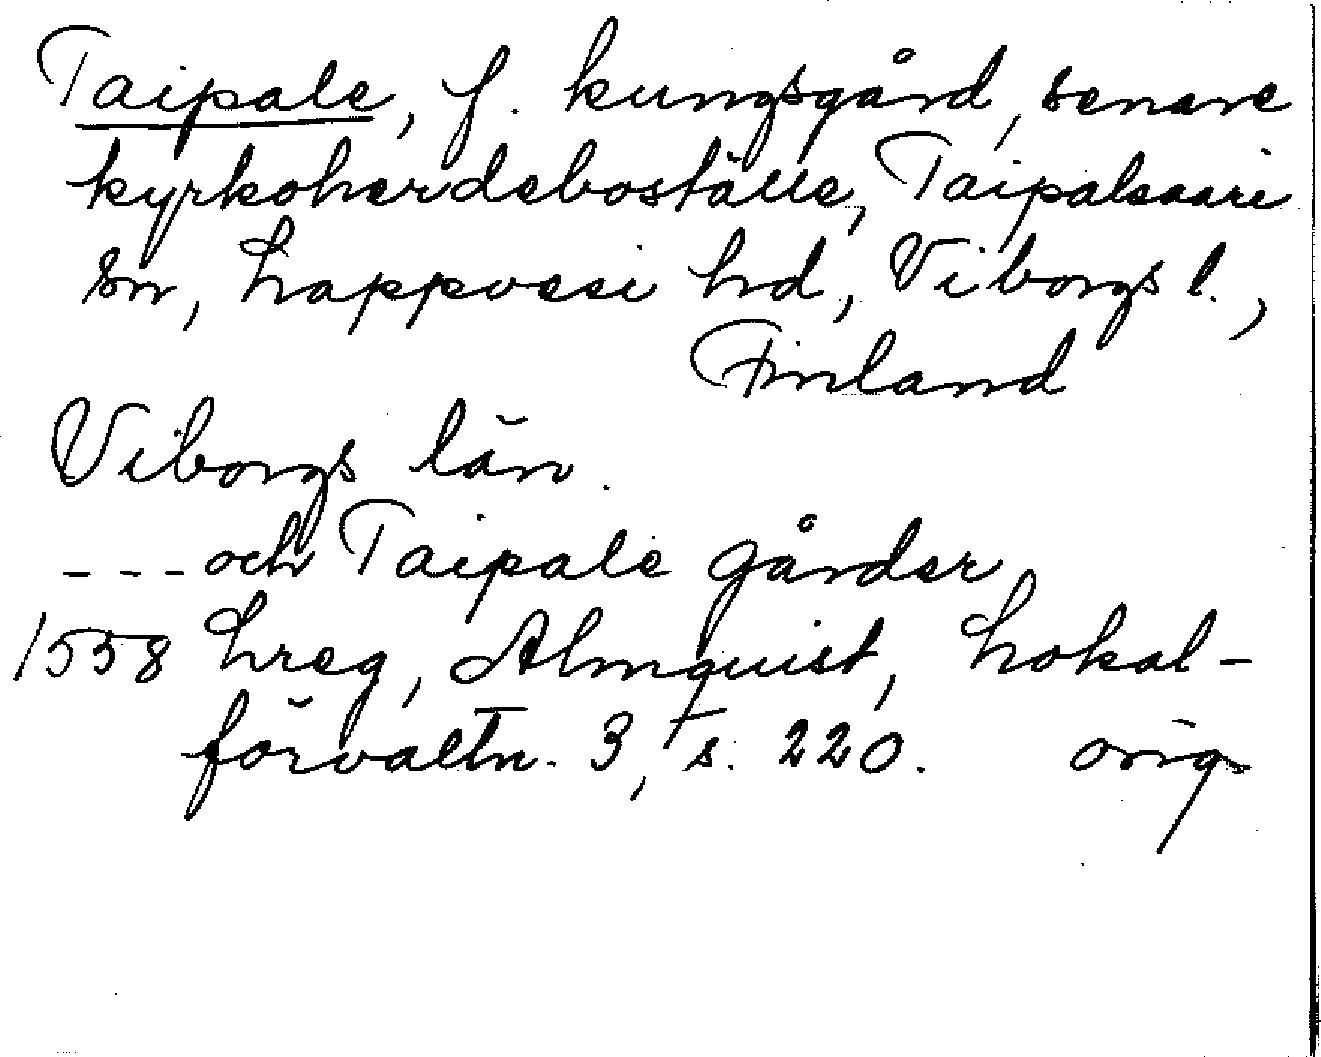 Taipale, f. kungsgård, senare
kyrkoherdeboställe, Taipalsaari
sn, Lappvesi hd, Viborgs l.,
Finland
Viborgs län.
--- och Taipale gårder
1558 Lreg, Almquist, Lokal-
förvaltn. 3, s. 220. orig